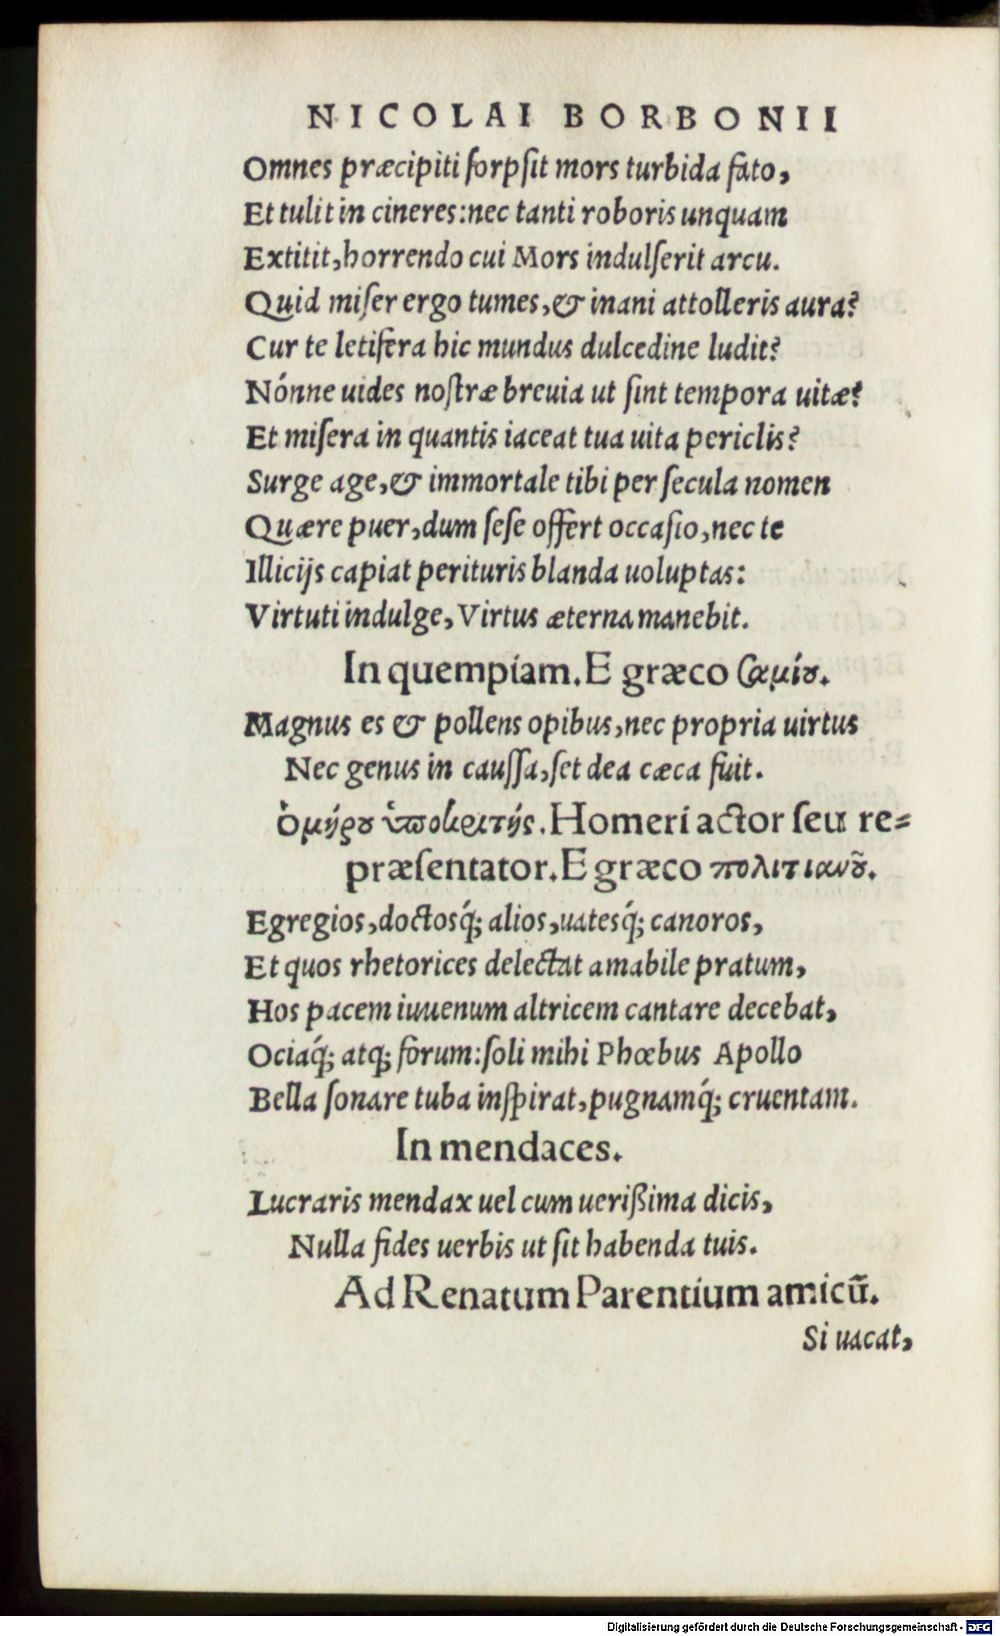 NICOLAI BORBONII
Omnes præcipiti sorpsit mors turbida fato,
Et tulit in cineres: nec tanti roboris unquam
Extitit, horrendo cui Mors indulserit arcu.
Quid miser ergo tumes, & inani attolleris aura?
Cur te letifera hic mundus dulcedine ludit?
Nónne uides nostræ breuia ut sint tempora uitæ?
Et misera in quantis iaceat tua uita periclis?
Surge age, & immortale tibi per secula nomen
Quære puer, dum sese offert occasio, nec te
Illicijs capiat perituris blanda uoluptas:
Virtuti indulge, Virtus æterna manebit.
In quempiam. E græco σαμίου.
Magnus es & pollens opibus, nec propria uirtus
Nec genus in caussa, set dea cæca fuit.
ὁμήρου ὑποκριτής. Homeri actor seu re-
præsentator. E græco πολιτιανοῦ.
Egregios, doctosq́; alios, uatesq́; canoros,
Et quos rhetorices delectat amabile pratum,
Hos pacem iuuenum altricem cantare decebat,
Ociaq́; atq; forum: soli mihi Phœbus Apollo
Bella sonare tuba inspirat, pugnamq́; cruentam.
In mendaces.
Lucraris mendax uel cum uerißima dicis,
Nulla fides uerbis ut sit habenda tuis.
Ad Renatum Parentium amicū.
Si uacat,
Digitalisierung gefördert durch die Deutsche Forschungsgemeinschaft - DFG